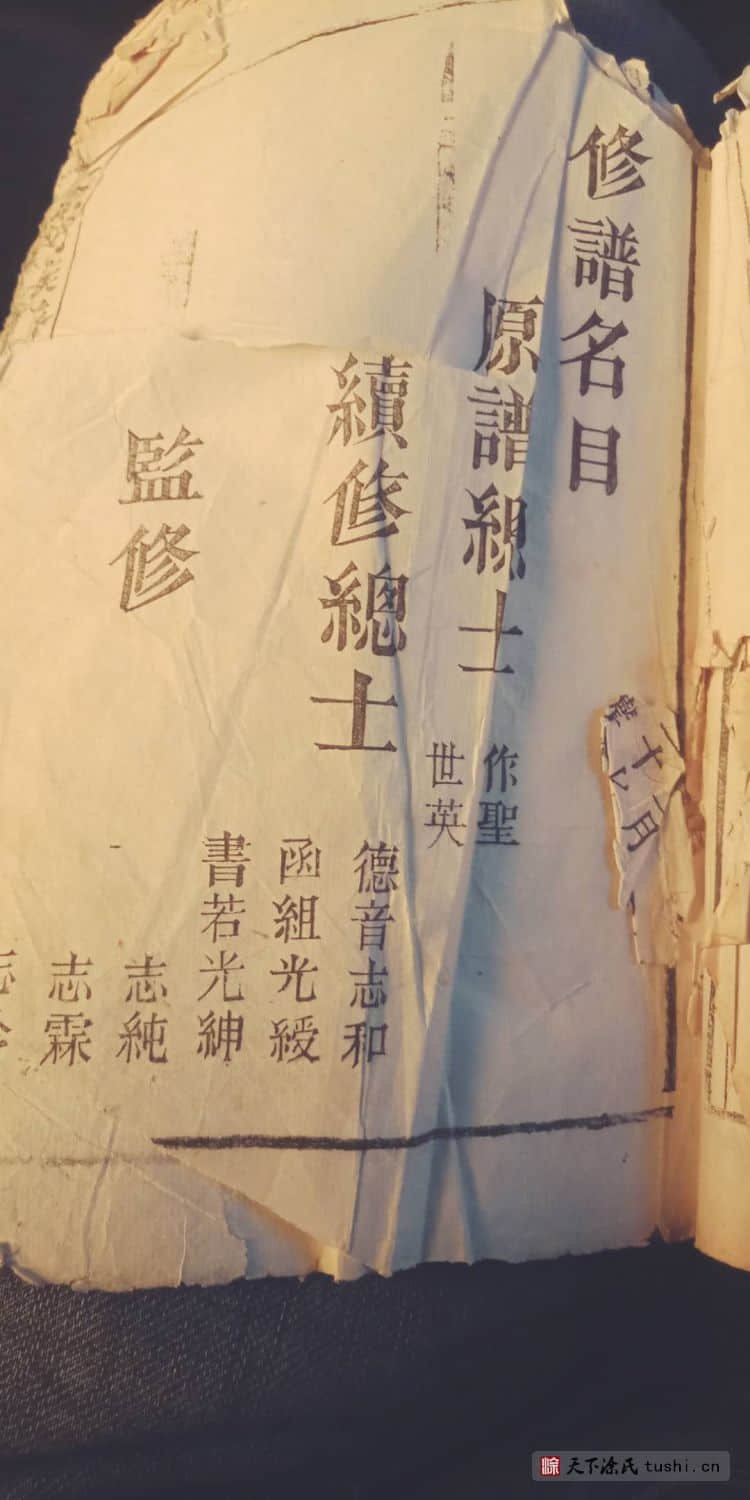 修譜名目
原譜總士
作聖
世英
續修總士
德音志和
函組光綬
書若光紳
監修
志純
志霖
志
十一月
天下涂氏 tushi.cn